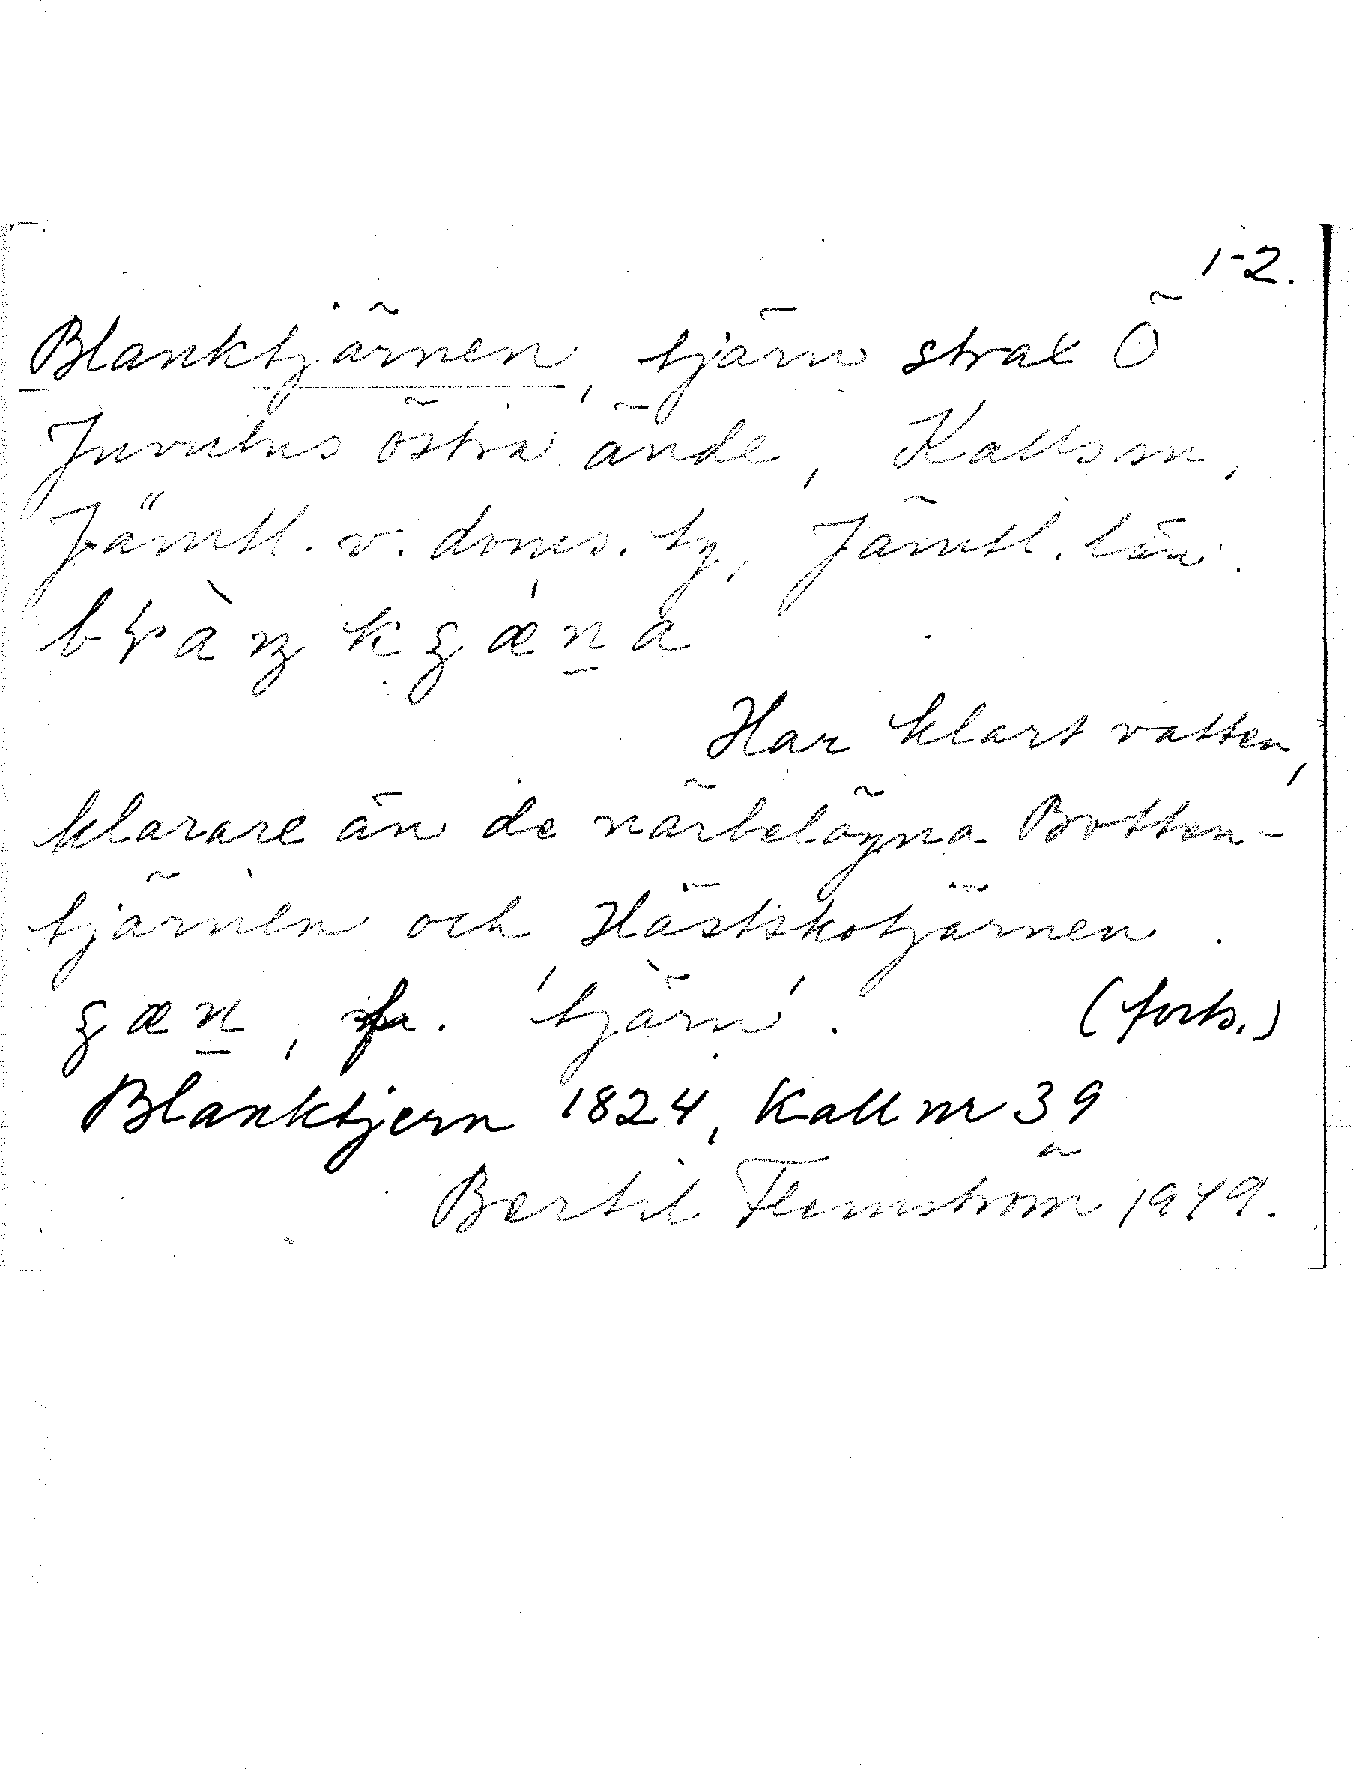 1-2.
Blanktjärnen, tjärn strax Ö
Juvulns östra ände, Kalls sn,
Jämtl. v. doms. tg, Jämtl. län.
Har klart vatten,
klarare än de närbelägna Botten-
tjärnen och Hästskotjärnen.
f. 'tjärn'. (forts.)
Blanktjern 1824, Kall nr 39
Bertil Flemström 1949.